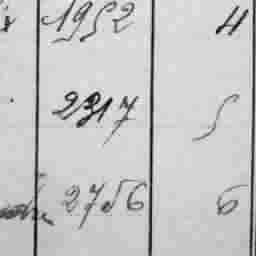 1952 4
2317 5
2756 6